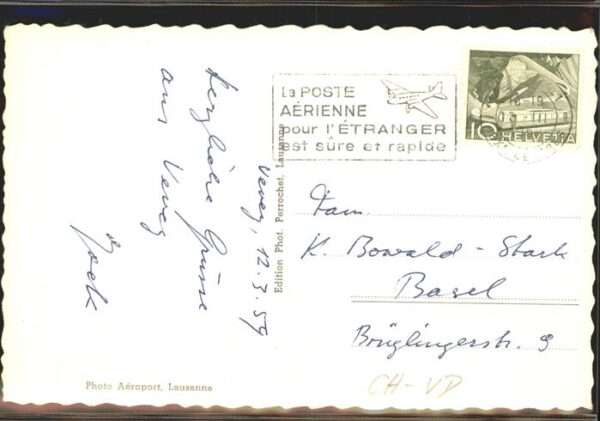 La POSTE
AÉRIENNE
pour l'ÉTRANGER
est sûre et rapide
10 HELVETIA
Herzliche Grüsse
aus Vevey
Vevey, 12.3.59
Edition Phot. Perrochet, Lausanne
Fam.
K. Bowald - Stark
Basel
Brüglingerstr. 9
CH-VD
Photo Aéroport, Lausanne